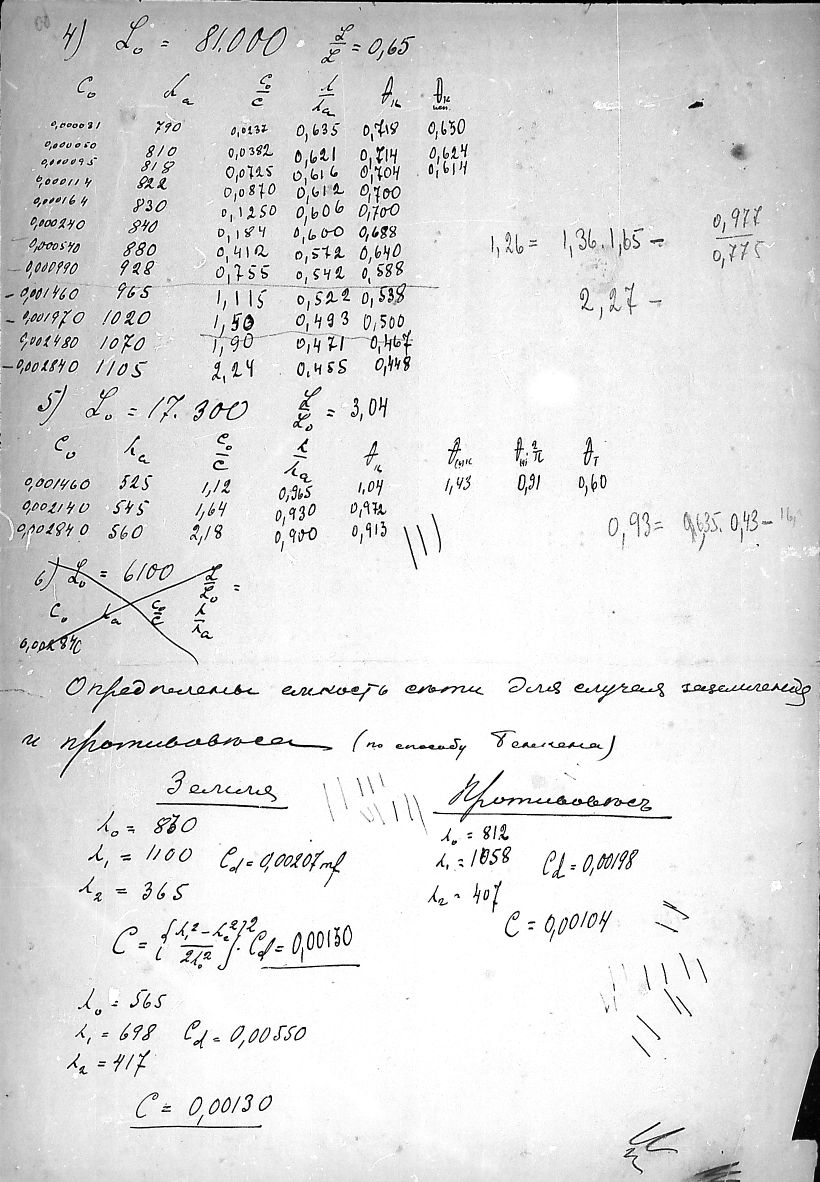 4) L₀ = 81.000 L/L = 0,65
C₀ λa C₀/C λ/λa
0,000031 790 0,0237 0,635 0,718 0,630
0,000050 810 0,0382 0,621 0,714 0,624
0,000095 818 0,0725 0,616 0,704 0,614
0,000114 822 0,0870 0,612 0,700
0,000164 830 0,1250 0,606 0,700
0,000240 840 0,184 0,600 0,688
0,000540 880 0,412 0,572 0,640
0,000990 928 0,755 0,542 0,588
0,001460 965 1,115 0,522 0,538
0,001970 1020 1,50 0,493 0,500
0,002480 1070 1,90 0,471 0,467
0,002840 1105 2,24 0,455 0,448
1,26 = 1,36.1,65 – 0,977/0,775
2,27 –
5) L₀ = 17.300 L/L₀ = 3,04
C₀ λa C₀/C λ/λa
0,001460 525 1,12 0,965 1,04 1,43 0,91 0,60
0,002140 545 1,64 0,930 0,972
0,002840 560 2,18 0,900 0,913
0,93 = 0,635. 0,43 –
6) L₀ = 6100 L/L₀ =
C₀ λa C₀/C λ/λa
0,002840
Определены емкость сѣти для случая заземленія
и противовѣса (по способу)
Земля
λ₀ = 830
λ₁ = 1100 Cd = 0,00207 mf
λ₂ = 365
C = {(λ₁² – λ₂²)/2λ₀²}² · Cd = 0,00130
λ₀ = 565
λ₁ = 698 Cd = 0,00550
λ₂ = 417
C = 0,00130
Противовѣсъ
λ₀ = 812
λ₁ = 1058 Cd = 0,00198
λ₂ = 407
C = 0,00104